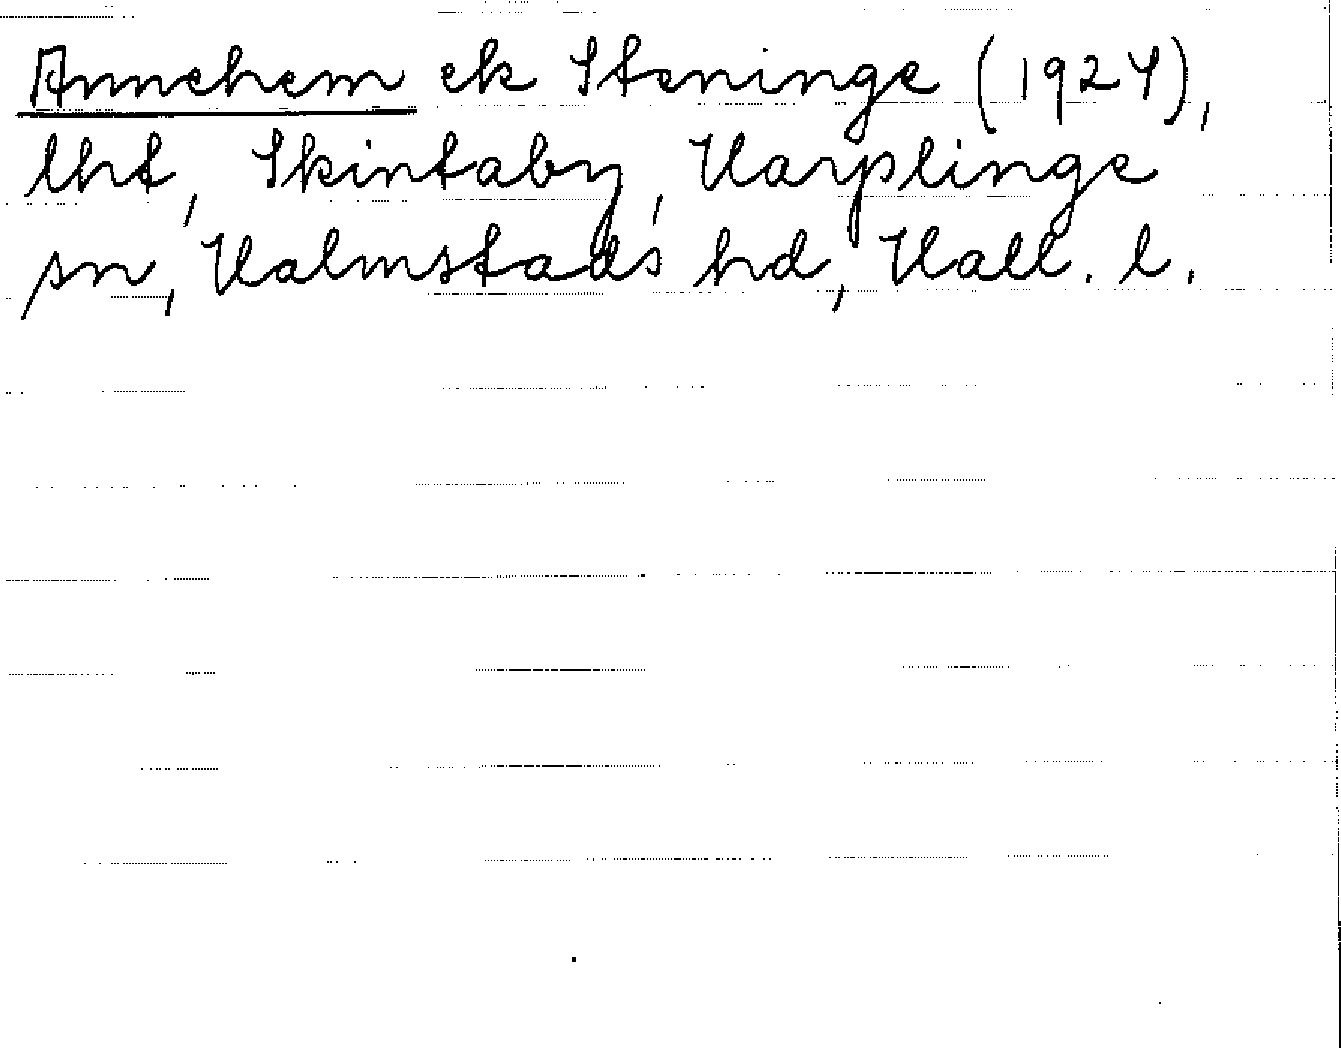 Annehem ek Steninge (1924),
lht, Skintaby, Harplinge
sn, Halmstads hd, Hall. l.